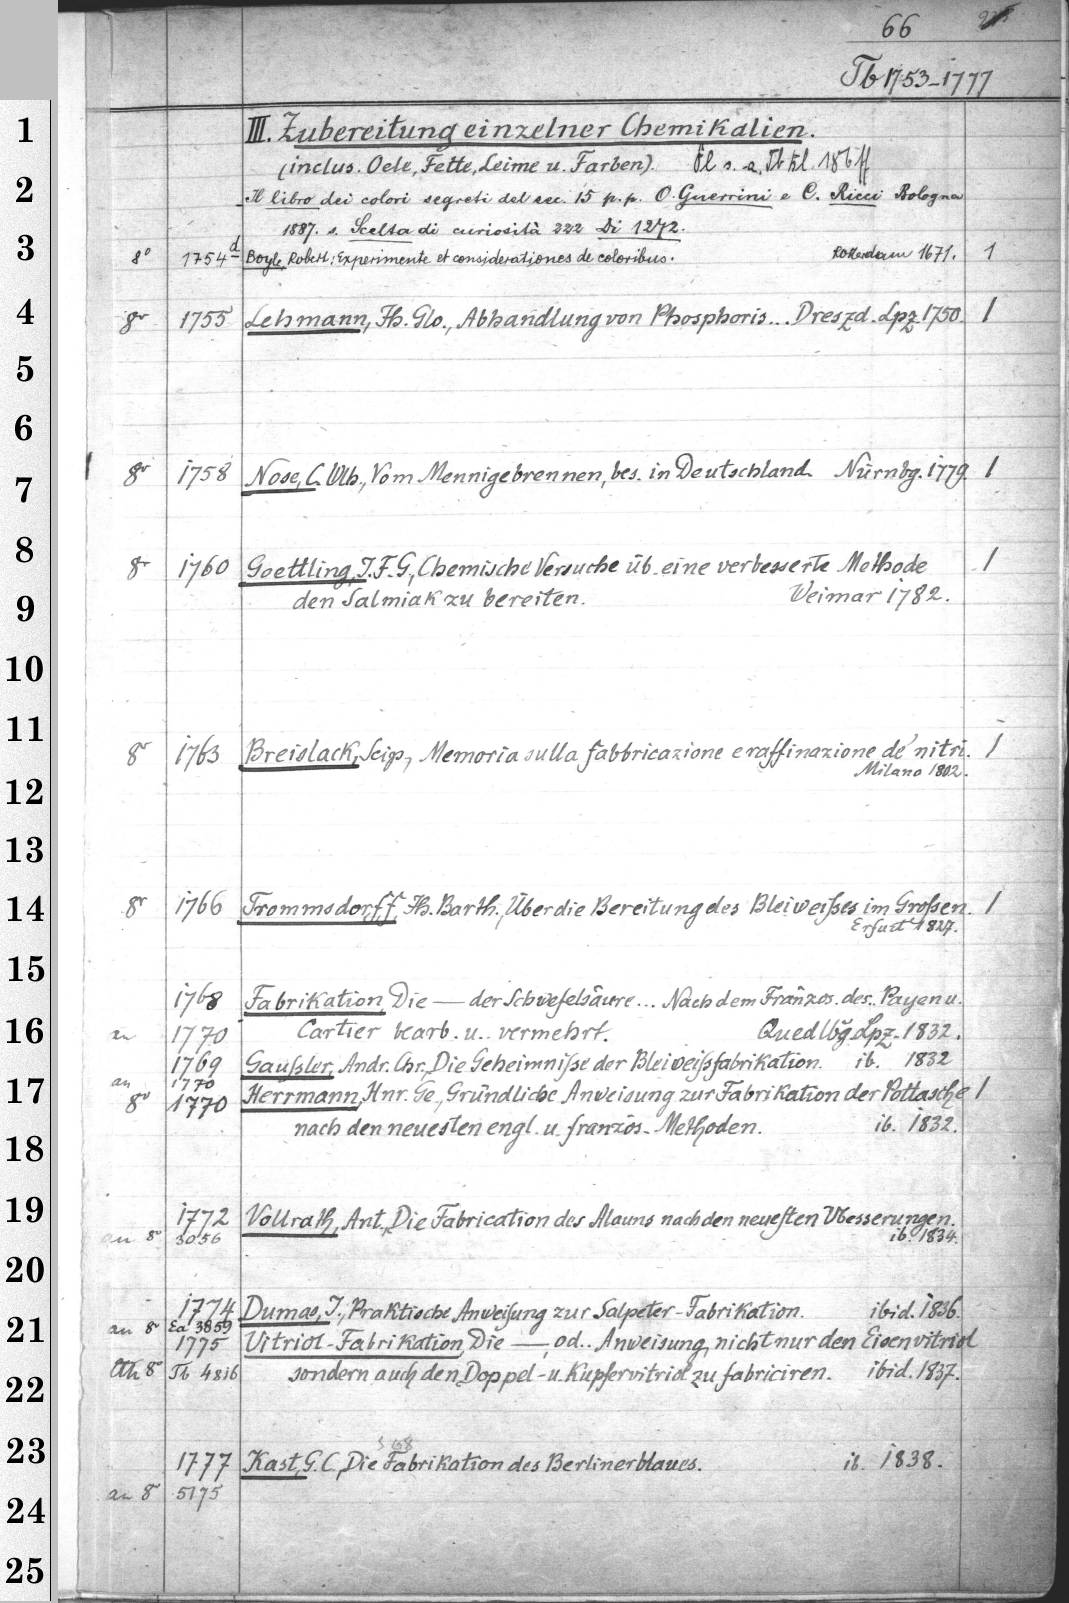 66
Tb 1753-1777
1
III. Zubereitung einzelner Chemikalien.
(inclus. Oele, Fette, Leime u. Farben).
2
Il libro dei colori segreti del sec. 15 p.p. O. Guerrini e C. Ricci Bologna
1887. s. Scelta di curiosità 222 Di 1272.
3
8° 1754d Boyle, Robert: Experimente et considerationes de coloribus. Rotterdam 1671. 1
4
8r 1755 Lehmann, Jh. Glo., Abhandlung von Phosphoris... Dreszd. Lpz 1750. 1
5
6
7
8r 1758 Nose, C. Wlh., Vom Mennigebrennen, bes. in Deutschland Nürnbg. 1779. 1
8
8r 1760 Goettling, J. F. G., Chemische Versuche üb. eine verbesserte Methode 1
den Salmiak zu bereiten. Weimar 1782.
9
10
11
8r 1763 Breislack, Scip., Memoria sulla fabbricazione e raffinazione de' nitri. 1
Milano 1802.
12
13
14
8r 1766 Trommsdorff, Jh. Barth., Über die Bereitung des Bleiweißes im Großen. 1
Erfurt 1827.
15
1768 Fabrikation, Die — der Schwefelsäure... Nach dem Französ. des.. Payen u.
16
an 1770 Cartier bearb. u. vermehrt. Quedlbg. Lpz. 1832.
1769 Gaußler, Andr. Chr., Die Geheimniße der Bleiweißfabrikation. ib. 1832
an 1770
17
8° 1770 Herrmann, Hnr. Ge., Gründliche Anweisung zur Fabrikation der Pottasche 1
nach den neuesten engl. u. französ. Methoden. ib. 1832.
18
19
1772 Vollrath, Ant., Die Fabrication des Alauns nach den neuesten Vbesserungen.
an 8° 3056 ib. 1834.
20
1774 Dumas, J., Praktische Anweisung zur Salpeter-Fabrikation. ibid. 1836.
21
an 8° Ea 3859
1775 Vitriol-Fabrikation, Die —, od.. Anweisung, nicht nur den Eisenvitriol
8° Tb 4816 sondern auch den Doppel- u. Kupfervitriol zu fabriciren. ibid. 1837.
22
23
1777 Kast, G. C., Die Fabrikation des Berlinerblaues. ib. 1838.
an 8° 5175
24
25